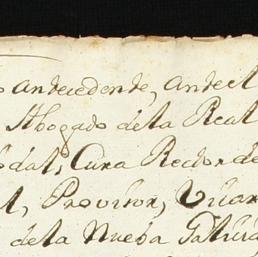 o antecedente, ante el
Abogado dela Real
dal, Cura Rector de
l, Provisor, Vicar
dela Nueba Galicia